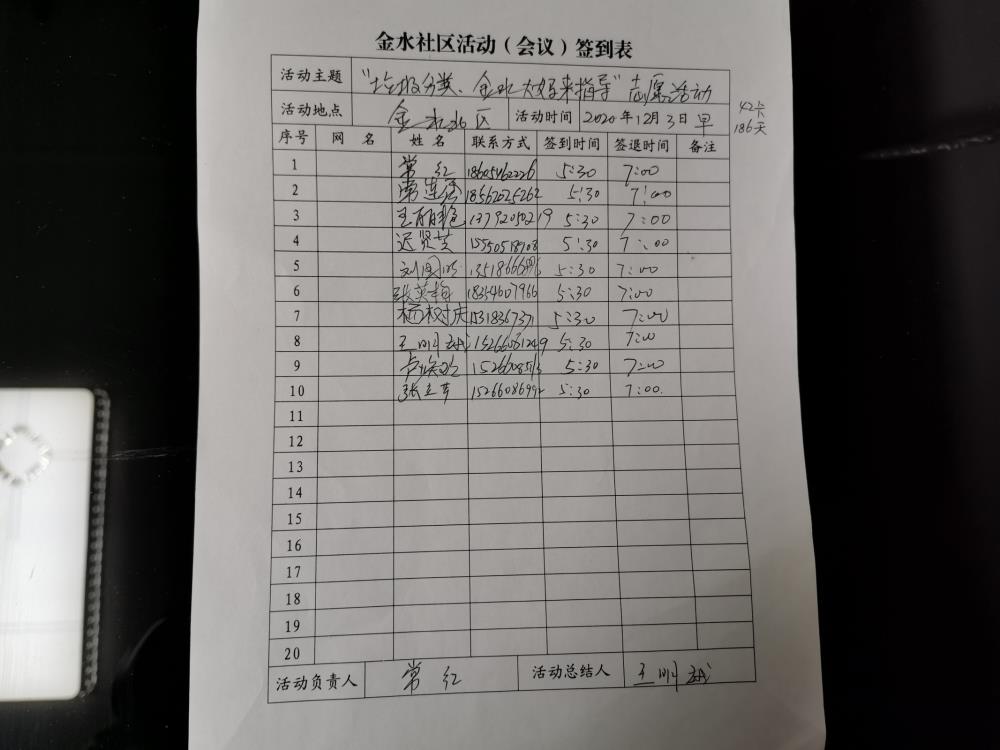 金水社区活动（会议）签到表
活动主题 "垃圾分类、金水大妈来指导"志愿活动
活动地点 金水北区 活动时间 2020年12月3日早
42卡
186天
序号 网 名 姓 名 联系方式 签到时间 签退时间 备注
1 常红 18605462226 5:30 7:00
2 常连 18562025262 5:30 7:00
3 王丽艳 13792050219 5:30 7:00
4 迟贤芝 15550518908 5:30 7:00
5 刘国 13518666 5:30 7:00
6 张英梅 18354607966 5:30 7:00
7 杨树庆 15318367371 5:30 7:00
8 王明 15266081249 5:30 7:00
9 卢 1526608513 5:30 7:00
10 张立 1526608699 5:30 7:00
11
12
13
14
15
16
17
18
19
20
活动负责人 常红 活动总结人 王明